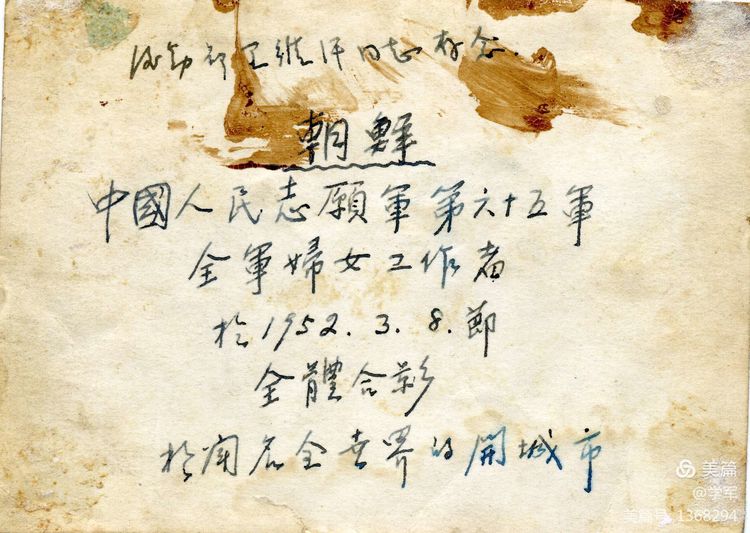 勤部王继同志存念.
朝鮮
中國人民志願軍第六十五軍
全軍婦女工作者
於1952.3.8.節
全體合影
於闻名全世界的開城市
美篇
@学军
美篇号 1368294